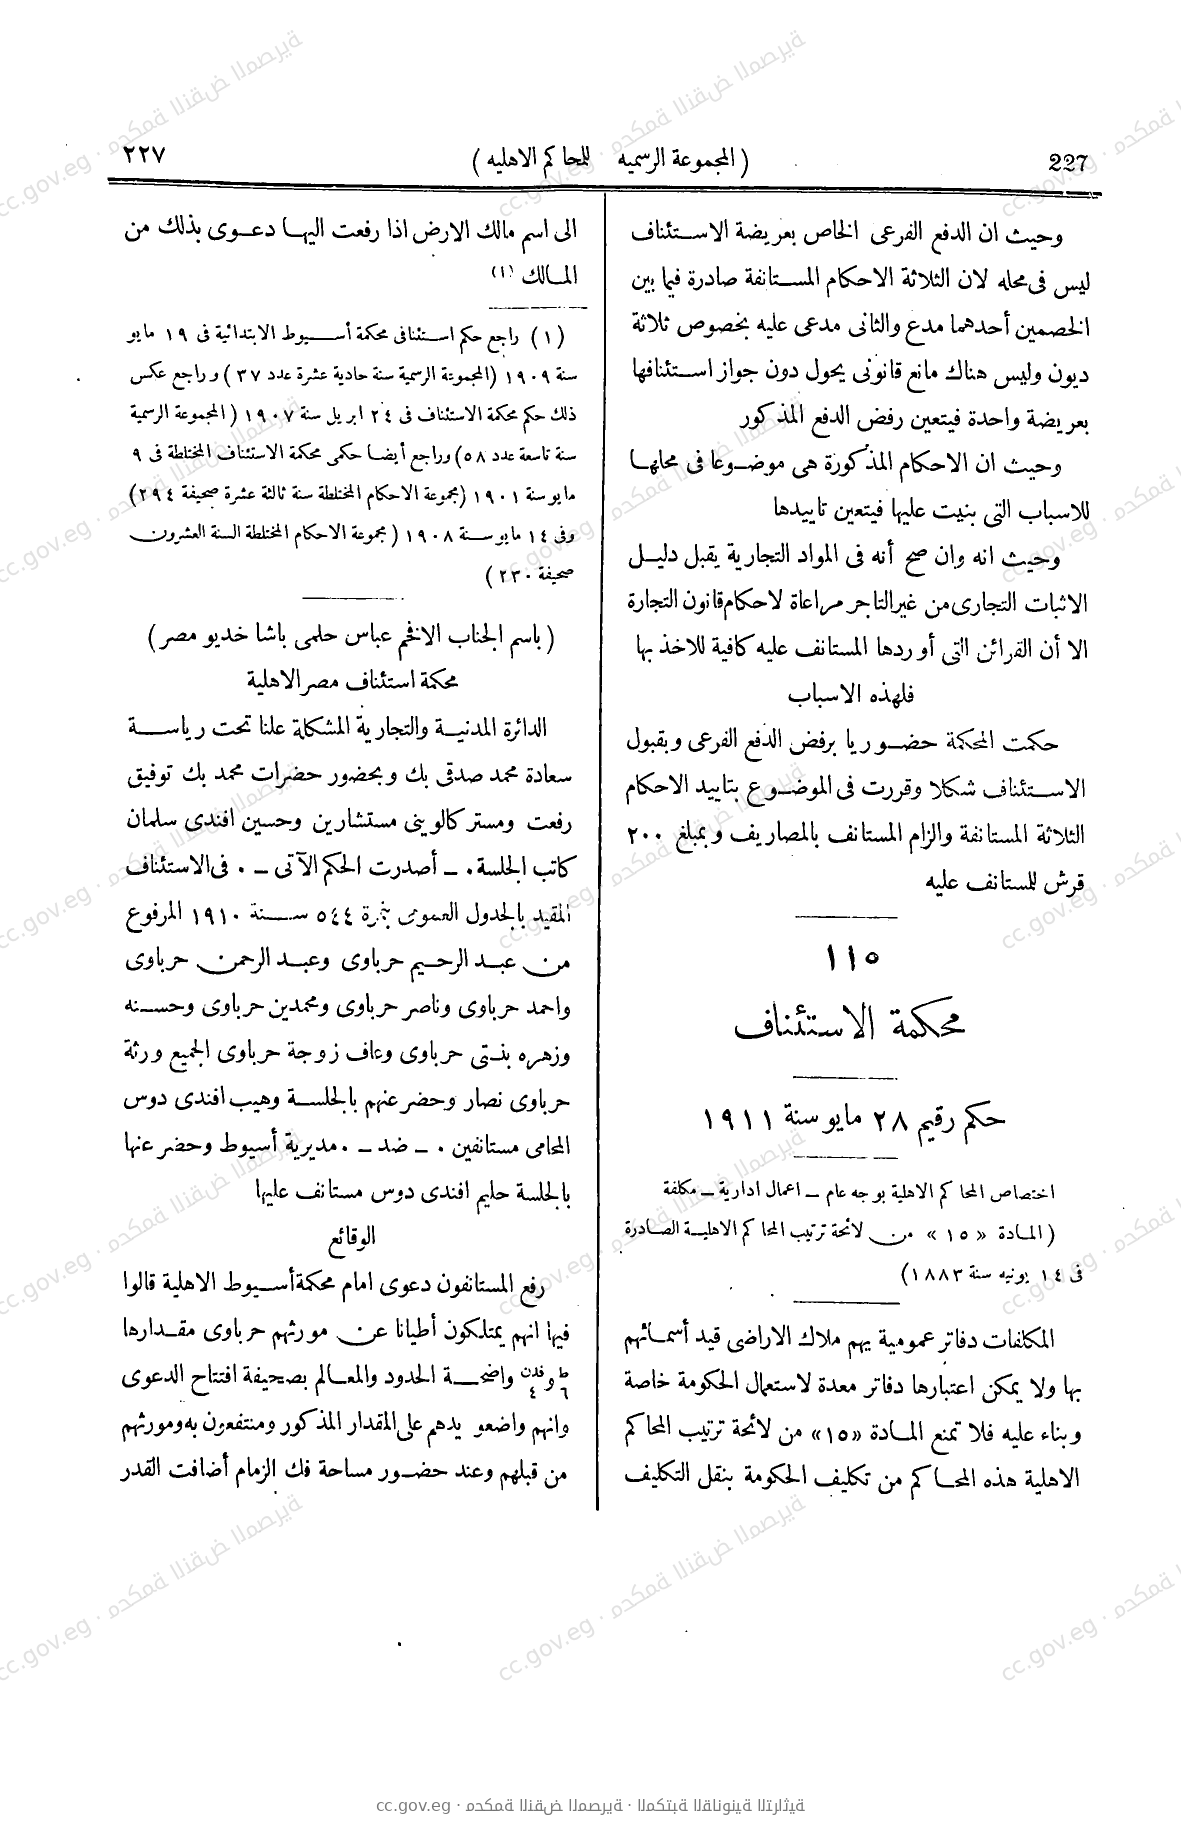 227
(المجموعة الرسميه للمحاكم الاهليه)
٢٢٧
وحيث ان الدفع الفرعى الخاص بعريضة الاستئناف
ليس فى محله لان الثلاثة الاحكام المستانفة صادرة فيما بين
الخصمين أحدهما مدع والثانى مدعى عليه بخصوص ثلاثة
ديون وليس هناك مانع قانونى يحول دون جواز استئنافها
بعريضة واحدة فيتعين رفض الدفع المذكور
وحيث ان الاحكام المذكورة هى موضوعا فى محلها
للاسباب التى بنيت عليها فيتعين تاييدها
وحيث انه وان صح أنه فى المواد التجارية يقبل دليل
الاثبات التجارى من غير التاجر مراعاة لاحكام قانون التجارة
الا أن القرائن التى أوردها المستانف عليه كافية للاخذ بها
فلهذه الاسباب
حكمت المحكمة حضوريا برفض الدفع الفرعى وبقبول
الاستئناف شكلا وقررت فى الموضوع بتاييد الاحكام
الثلاثة المستانفة والزام المستانف بالمصاريف وبمبلغ ٢٠٠
قرش للمستانف عليه
١١٥
محكمة الاستئناف
حكم رقيم ٢٨ مايو سنة ١٩١١
اختصاص المحاكم الاهلية بوجه عام – اعمال ادارية – مكلفة
(المادة «١٥» من لائحة ترتيب المحاكم الاهلية الصادرة
فى ١٤ يونيه سنة ١٨٨٣)
المكلفات دفاتر عمومية يهم ملاك الاراضى قيد أسمائهم
بها ولا يمكن اعتبارها دفاتر معدة لاستعمال الحكومة خاصة
وبناء عليه فلا تمنع المادة «١٥» من لائحة ترتيب المحاكم
الاهلية هذه المحاكم من تكليف الحكومة بنقل التكليف
الى اسم مالك الارض اذا رفعت اليها دعوى بذلك من
المالك (١)
(١) راجع حكم استئنافى محكمة أسيوط الابتدائية فى ١٩ مايو
سنة ١٩٠٩ (المجموعة الرسمية سنة حادية عشرة عدد ٣٧) وراجع عكس
ذلك حكم محكمة الاستئناف فى ٢٤ ابريل سنة ١٩٠٧ (المجموعة الرسمية
سنة تاسعة عدد ٥٨) وراجع أيضا حكمى محكمة الاستئناف المختلطة فى ٩
مايو سنة ١٩٠١ (مجموعة الاحكام المختلطة سنة ثالثة عشرة صحيفة ٢٩٤)
وفى ١٤ مايو سنة ١٩٠٨ (مجموعة الاحكام المختلطة السنة العشرون
صحيفة ٢٣٠)
(باسم الجناب الافخم عباس حلمى باشا خديو مصر)
محكمة استئناف مصر الاهلية
الدائرة المدنية والتجارية المشكلة علنا تحت رياسة
سعادة محمد صدقى بك وبحضور حضرات محمد بك توفيق
رفعت ومستر كالوينى مستشارين وحسين افندى سلمان
كاتب الجلسة . – أصدرت الحكم الآتى – . فى الاستئناف
المقيد بالجدول العمومى بنمرة ٥٤٤ سنة ١٩١٠ المرفوع
من عبد الرحيم حرباوى وعبد الرحمن حرباوى
واحمد حرباوى وناصر حرباوى ومحمدين حرباوى وحسنه
وزهره بنتى حرباوى وعاف زوجة حرباوى الجميع ورثة
حرباوى نصار وحضر عنهم بالجلسة وهيب افندى دوس
المحامى مستانفين . – ضد – . مديرية أسيوط وحضر عنها
بالجلسة حليم افندى دوس مستانف عليها
الوقائع
رفع المستانفون دعوى امام محكمة أسيوط الاهلية قالوا
فيها انهم يمتلكون أطيانا عن مورثهم حرباوى مقدارها
واضحة الحدود والمعالم بصحيفة افتتاح الدعوى
وانهم واضعو يدهم على المقدار المذكور ومنتفعون به ومورثهم
من قبلهم وعند حضور مساحة فك الزمام أضافت القدر
cc.gov.eg · محكمة النقض المصرية · المكتبة القانونية التراثية